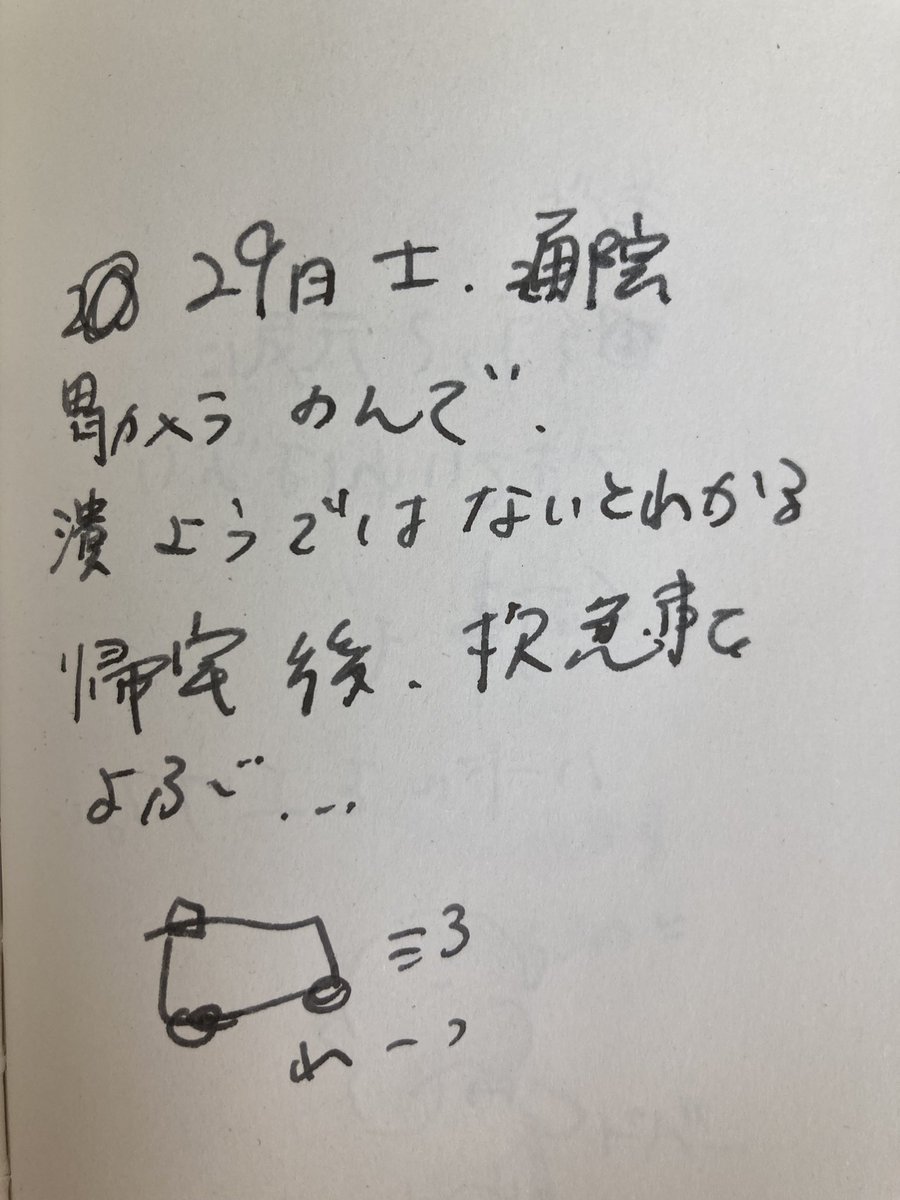 29日 土. 通院
胃カメラ のんで.
潰ようではないとわかる
帰宅後. 救急車を
よぶ…
≡3
わーっ